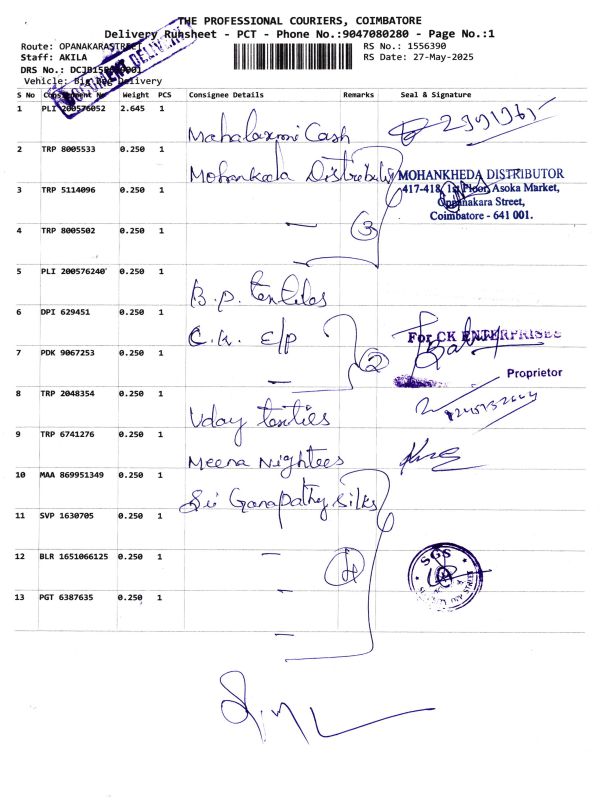 THE PROFESSIONAL COURIERS, COIMBATORE
Delivery Runsheet - PCT - Phone No.:9047080280 - Page No.:1
Route: OPANAKARASTREET
Staff: AKILA
RS No.: 1556390
RS Date: 27-May-2025
DRS No.:
Vehicle: Delivery
DOCUMENT DELIVERY
S No Consignment No Weight PCS Consignee Details Remarks Seal & Signature
1 PLI 200576052 2.645 1 Mahalaxmi Cash
2 TRP 8005533 0.250 1 Mohankeda
MOHANKHEDA DISTRIBUTOR
417-418, 1st Floor, Asoka Market,
Oppanakara Street,
Coimbatore - 641 001.
3 TRP 5114096 0.250 1 —
4 TRP 8005502 0.250 1 — 3
5 PLI 200576240 0.250 1 B.P. textiles
6 DPI 629451 0.250 1 C.K. E/P
For CK ENTERPRISES
Proprietor
7 PDK 9067253 0.250 1 — 2
8 TRP 2048354 0.250 1 Uday textiles
9 TRP 6741276 0.250 1 Meena Nightees
10 MAA 869951349 0.250 1 Sri Ganapathy Silks
11 SVP 1630705 0.250 1 —
12 BLR 1651066125 0.250 1 — 4
SGS
13 PGT 6387635 0.250 1 —